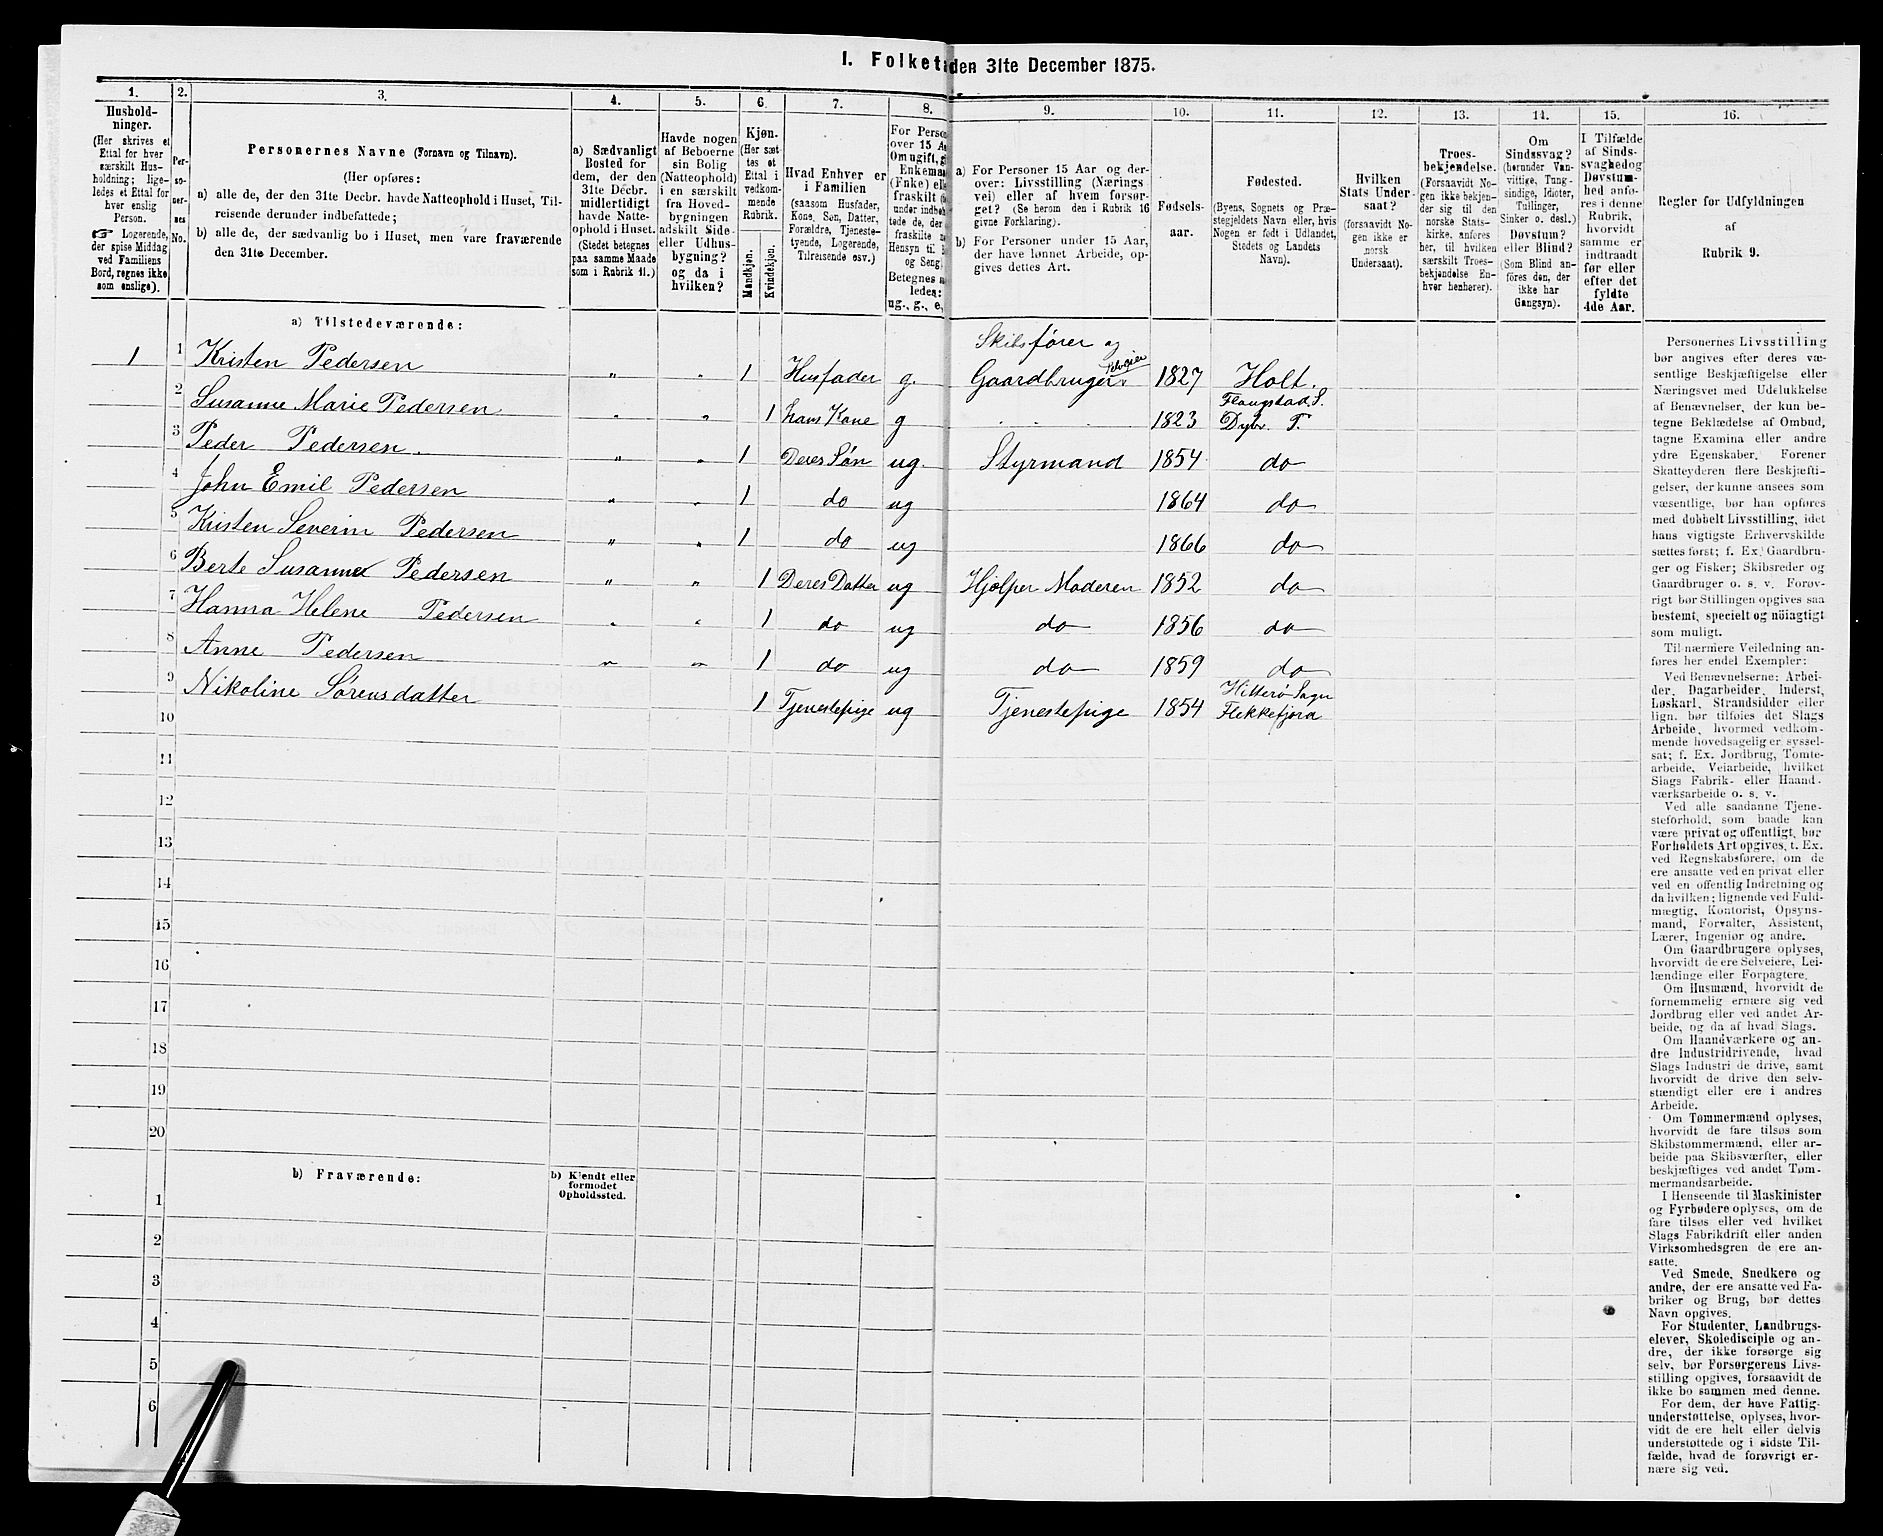 I. Folket den 31te December 1875.
1. 2. 3. 4. 5. 6. 7. 8. 9. 10. 11. 12. 13. 14. 15. 16.
Hushold-
ninger.
(Her skrives et
Ettal for hver
særskilt Hus-
holdning; lige-
ledes et Ettal for
hver enslig
Person.
☞ Logerende,
der spise Middag
ved Familiens
Bord, regnes ikke
som enslige).
Per-
so-
ner-
nes
No.
Personernes Navne (Fornavn og Tilnavn).
(Her opføres:
a) alle de, der den 31te Decbr. havde Natteophold i Huset, Til-
reisende derunder indbefattede;
b) alle de, der sædvanlig bo i Huset, men vare fraværende
den 31te December.
a) Sædvanligt
Bosted for
dem, der den
31te Decbr.
midlertidigt
havde Natte-
ophold i Huset.
(Stedet betegnes
paa samme Maade
som i Rubrik 11.)
Havde nogen
af Beboerne
sin Bolig
(Natteophold)
i en særskilt
fra Hoved-
bygningen
adskilt Side-
eller Udhus-
bygning?
og da i
hvilken?
Kjøn.
(Her sæt-
tes et
Ettal i
vedkom-
mende
Rubrik.
Mandkjøn.
Kvindekjøn.
Hvad Enhver er
i Familien
(saasom Husfader,
Kone, Søn, Datter,
Forældre, Tjeneste-
tyende, Logerende,
Tilreisende osv.)
For Perso
over 15 A
Om ugift, g
Enkema
(Enke) el
fraskilt
under indbe
tede de, der
fraskilte
Hensyn til
og Seng
Betegnes
ledes:
ug., g., e,
a) For Personer 15 Aar og der-
over: Livsstilling (Nærings
vei) eller af hvem forsør-
get? (Se herom den i Rubrik 16
givne Forklaring).
b) For Personer under 15 Aar,
der have lønnet Arbeide, op-
gives dettes Art.
Fødsels-
aar.
Fødested.
(Byens, Sognets og Præ-
stegjeldets Navn eller, hvis
Nogen er født i Udlandet,
Stedets og Landets
Navn).
Hvilken
Stats Under-
saat?
(forsaavidt No-
gen ikke er
norsk
Undersaat).
Troes-
bekjendelse.
(Forsaavidt No-
gen ikke bekjen-
der sig til den
norske Stats-
kirke, anføres
her, til hvilken
særskilt Troes-
bekjendelse En-
hver henhører).
Om
Sindssvag?
(herunder Van-
vittige, Tung-
sindige, Idioter,
Tullinger,
Sinker o. desl.)
Døvstum?
eller Blind?
(Som Blind an-
føres den, der
ikke har
Gangsyn).
I Tilfælde
af Sinds-
svaghed og
Døvstum-
hed anfø-
res i denne
Rubrik,
hvorvidt
samme er
indtraadt
før eller
efter det
fyldte
4de Aar.
Regler for Udfyldningen
af
Rubrik 9.
a) Tilstedeværende:
Skibsfører og
1 1 Kristen Pedersen " " 1 Husfader g. Gaardbruger Selveier 1827 Holt.
2 Susanne Marie Pedersen " " 1 hans Kone g 1823 S. Dybv. P.
3 Peder Pedersen. " " 1 Deres Søn ug. Styrmand 1854 do
4 John Emil Pedersen " " 1 do ug 1864 do
5 Kristen Severin Pedersen " " 1 do ug 1866 do
6 Berte Susanne Pedersen " " 1 Deres Datter ug Hjælper Moderen 1852 do
7 Hanna Helene Pedersen " " 1 do ug do 1856 do
8 Anne Pedersen " " 1 do ug do 1859 do
9 Nikoline Sørensdatter 1 Tjenestepige ug Tjenestepige 1854 Hitterø Sogn Flekkefjord
10
11
12
13
14
15
16
17
18
19
20
b) Fraværende:
b) Kjendt eller
formodet
Opholdssted.
1
2
3
4
5
6
Personernes Livsstilling
bør angives efter deres væ-
sentlige Beskjæftigelse eller
Næringsvei med Udelukkelse
af Benævnelser, der kun be-
tegne Beklædelse af Ombud,
tagne Examina eller andre
ydre Egenskaber. Forener
Skatteyderen flere Beskjæfti-
gelser, der kunne ansees som
væsentlige, bør han opføres
med dobbelt Livsstilling, idet
hans vigtigste Erhvervskilde
sættes først; f. Ex. Gaardbru-
ger og Fisker; Skibsreder og
Gaardbruger o. s. v. Forøv-
rigt bør Stillingen opgives saa
bestemt, specielt og nöiagtigt
som muligt.
Til nærmere Veiledning an-
føres her endel Exempler:
Ved Benævnelserne: Arbei-
der, Dagarbeider, Inderst,
Løskarl, Strandsidder eller
lign. bør tilføies det Slags
Arbeide, hvormed vedkom-
mende hovedsagelig er syssel-
sat; f. Ex. Jordbrug, Tomte-
arbeide, Veiarbeide, hvilket
Slags Fabrik- eller Haand-
værksarbeide o. s. v.
Ved alle saadanne Tjene-
steforhold, som baade kan
være privat og offentligt, bør
Forholdets Art opgives, t. Ex.
ved Regnskabsførere, om de
ere ansatte ved en privat eller
ved en offentlig Indretning og
da hvilken; lignende ved Fuld-
mægtig, Kontorist, Opsyns-
mand, Forvalter, Assistent,
Lærer, Ingeniør og andre.
Om Gaardbrugere oplyses,
hvorvidt de ere Selveiere, Lei-
lændinge eller Forpagtere.
Om Husmænd, hvorvidt de
fornemmelig ernære sig ved
Jordbrug eller ved andet Ar-
beide, og da af hvad Slags.
Om Haandværkere og an-
dre Industridrivende, hvad
Slags Industri de drive, samt
hvorvidt de drive den selv-
stændigt eller ere i andres
Arbeide.
Om Tømmermænd oplyses,
hvorvidt de fare tilsøs som
Skibstømmermænd, eller ar-
beide paa Skibsværfter, eller
beskjæftiges ved andet Tøm-
mermandsarbeide.
I Henseende til Maskinister
og Fyrbødere oplyses, om de
fare tilsøs eller ved hvilket
Slags Fabrikdrift eller anden
Virksomhedsgren de ere an-
satte.
Ved Smede, Snedkere og
andre, der ere ansatte ved Fa-
briker og Brug, bør dettes
Navn opgives.
For Studenter, Landbrugs-
elever, Skoledisciple og an-
dre, der ikke forsørge sig
selv, bør Forsørgerens Livs-
stilling opgives, forsaavidt de
ikke bo sammen med denne.
For dem, der have Fattig-
understøttelse, oplyses, hvor-
vidt de ere helt eller delvis
understøttede og i sidste Til-
fælde, hvad de forøvrigt er-
nære sig ved.